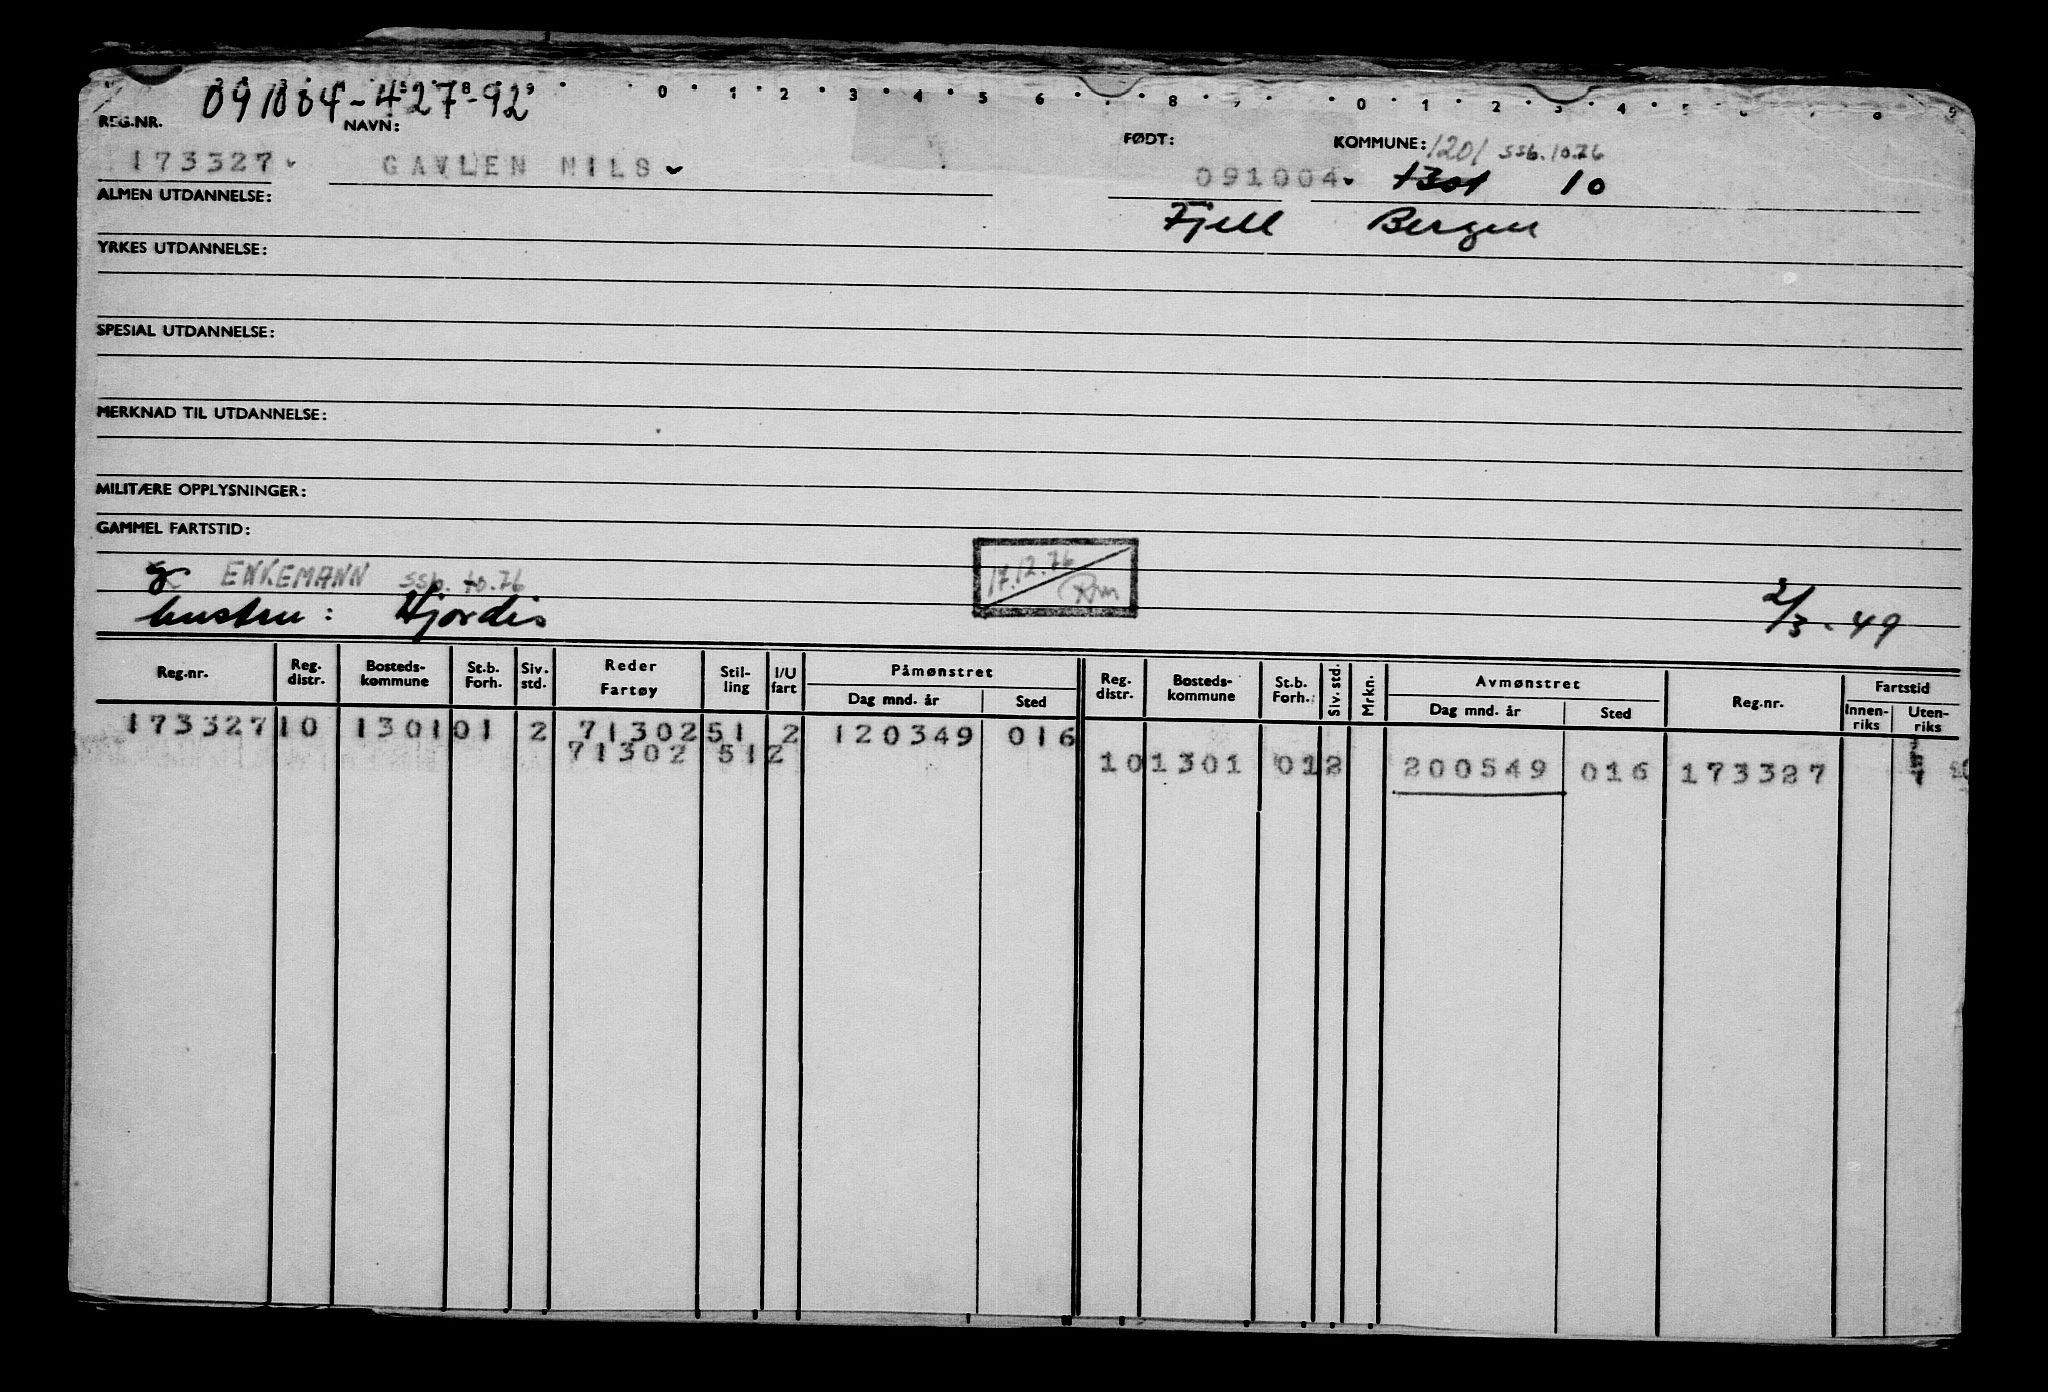 091004-42792
0 1 2 3 4 5 6 8 0 1 2 3 4
REG.NR. NAVN: FØDT: KOMMUNE: 1201 ssb. 10.76
173327 GAVLEN NILS 091004 1301 10
ALMEN UTDANNELSE: Fjell Bergen
YRKES UTDANNELSE:
SPESIAL UTDANNELSE:
MERKNAD TIL UTDANNELSE:
MILITÆRE OPPLYSNINGER:
GAMMEL FARTSTID:
g ENKEMANN ssb. 10.76 17.12.76
hustru: Hjordis 2/3-49
Reg.nr. Reg. distr. Bosteds-kommune St.b. Forh. Siv. std. Reder Fartøy Stil-ling I/U fart Påmønstret Dag mnd. år Sted Reg. distr. Bosteds-kommune St.b. Forh. Siv. std. Mrkn. Avmønstret Dag mnd. år Sted Reg.nr. Fartstid Innen-riks Uten-riks
173327 10 1301 01 2 71302 51 2 120349 016
71302 51 2 10 1301 01 2 200549 016 173327